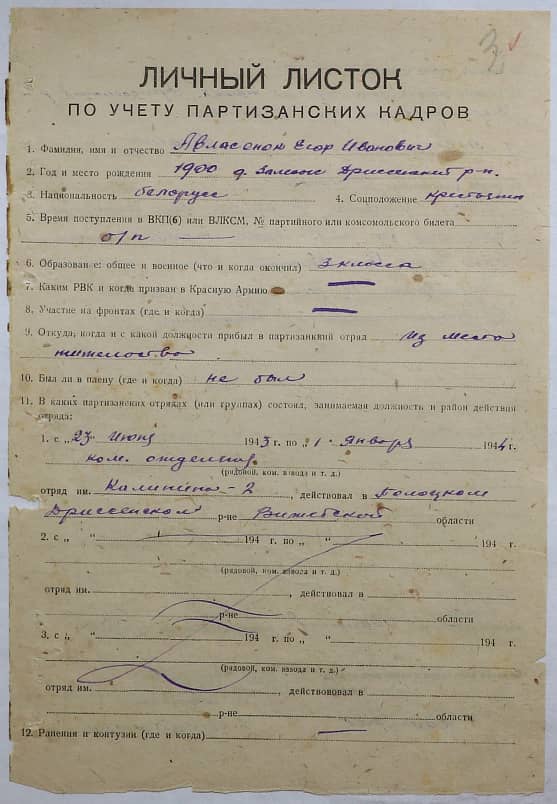 3
ЛИЧНЫЙ ЛИСТОК
ПО УЧЕТУ ПАРТИЗАНСКИХ КАДРОВ
1. Фамилия, имя и отчество Авласенок Егор Иванович
2. Год и место рождения 1900 д. Дриссенский р-н.
3. Национальность белорусс 4. Соцположение крестьянин
5. Время поступления в ВКП(б) или ВЛКСМ, № партийного или комсомольского билета
б/п
6. Образование: общее и военное (что и когда окончил) 3 класса
7. Каким РВК и когда призван в Красную Армию
8. Участие на фронтах (где и когда)
9. Откуда, когда и с какой должности прибыл в партизанский отряд из место
жительство
10. Был ли в плену (где и когда) не был
11. В каких партизанских отрядах (или группах) состоял, занимаемая должность и район действия
отряда:
1. с „23" Июня 1943 г. по „1" Января 1944 г.
ком. отделения
(рядовой, ком. взвода и т. д.)
отряд им. Калинина-2, действовал в Полоцком
Дриссенском р-не Витебской области
2. с „ " 194 г. по „ " 194 г.
(рядовой, ком. взвода и т. д.)
отряд им. , действовал в
р-не области
3. с „ " 194 г. по „ " 194 г.
(рядовой, ком. взвода и т. д.)
отряд им. , действовал в
р-не области
12. Ранения и контузии (где и когда)